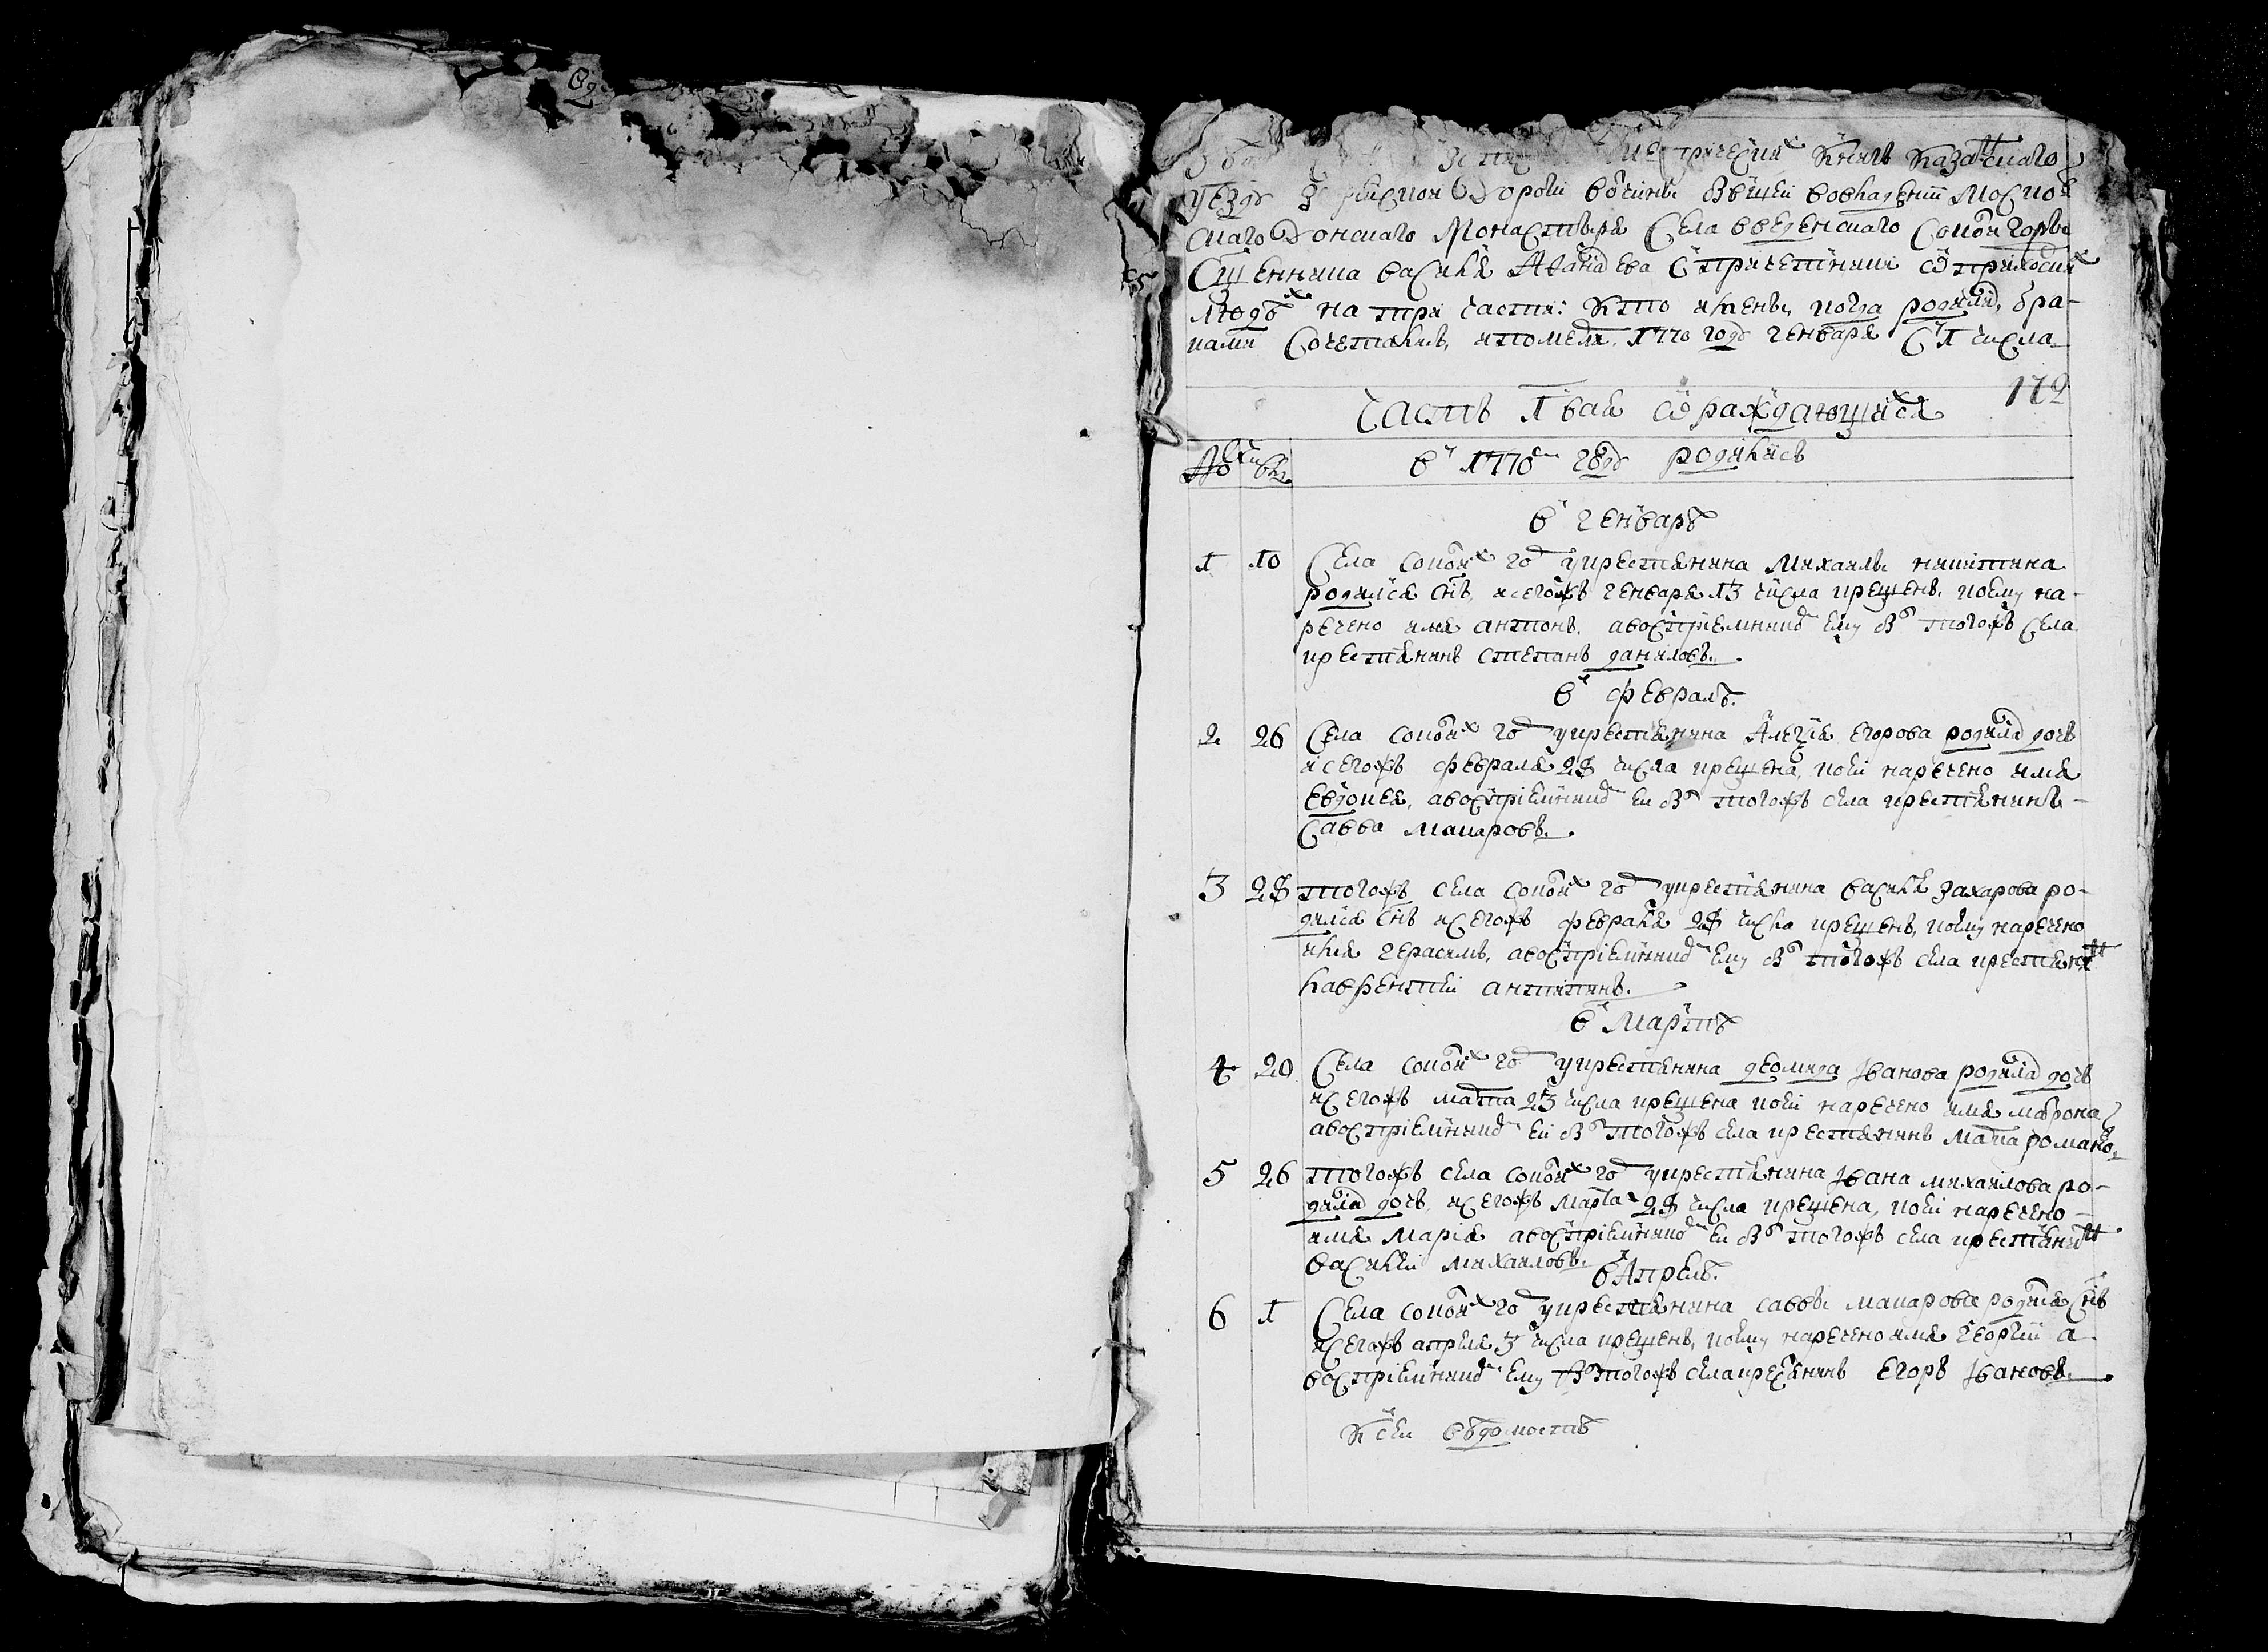 метрическихъ книгъ казанскаго
уезду Зюрейской дороги вотчины бывшей во владении Москов
скаго Донскаго Монастыря Села введенскаго Соколи горы
Сщенника василья с причетники о приходских
людехъ на три части: кто имены, когда родилися, бра-
ками Сочетались, и померли 1770 году генваря С 1 числа
172
Часть 1 вая о раждающихся
№ числы в 1770м году родились
в генваре
1 10 Села соколих гор у крестьянина Михаилы никитина
родился снъ, и сегожъ генваря 13 числа крещенъ, коему на-
речено имя антонъ, а восприемникомъ ему былъ тогожъ Села
крестьянинъ степанъ даниловъ.
в феврале
2 26 Села соколих гор у крестьянина Алексея Егорова родилас дочь
и сегожъ февраля 28 числа крещена, коей наречено имя
Евдокея, а восприемникомъ ей былъ тогожъ села крестьянинъ
Савва макаровъ.
3 28 тогожъ села соколих гор у крестьянина василья захарова ро-
дился снъ и сегожъ февраля 28 числа крещенъ, коему наречено
имя герасимъ, а восприемникомъ ему былъ тогожъ села крестьянинъ
лаврентей антипинъ.
в марте
4 20 Села соколих гор у крестьянина деомида Иванова родилас дочь
и сегожъ марта 23 числа крещена коей наречено имя матрона
а восприемникомъ ей былъ тогожъ села крестьянинъ макар романов
5 26 тогожъ села соколих гор у крестьянина Ивана михаилова ро-
дилас дочь, и сегожъ марта 28 числа крещена, коей наречено
имя Мария а восприемникомъ ей былъ тогожъ села крестьянинъ
василей михаиловъ.
в Апреле
6 1 Села соколих гор у крестьянина саввы макарова родился снъ
и сегожъ апреля 3 числа крещенъ, коему наречено имя георгий а
восприемникомъ ему былъ тогожъ села крестьянинъ Егоръ Ивановъ.
К сей ведомости